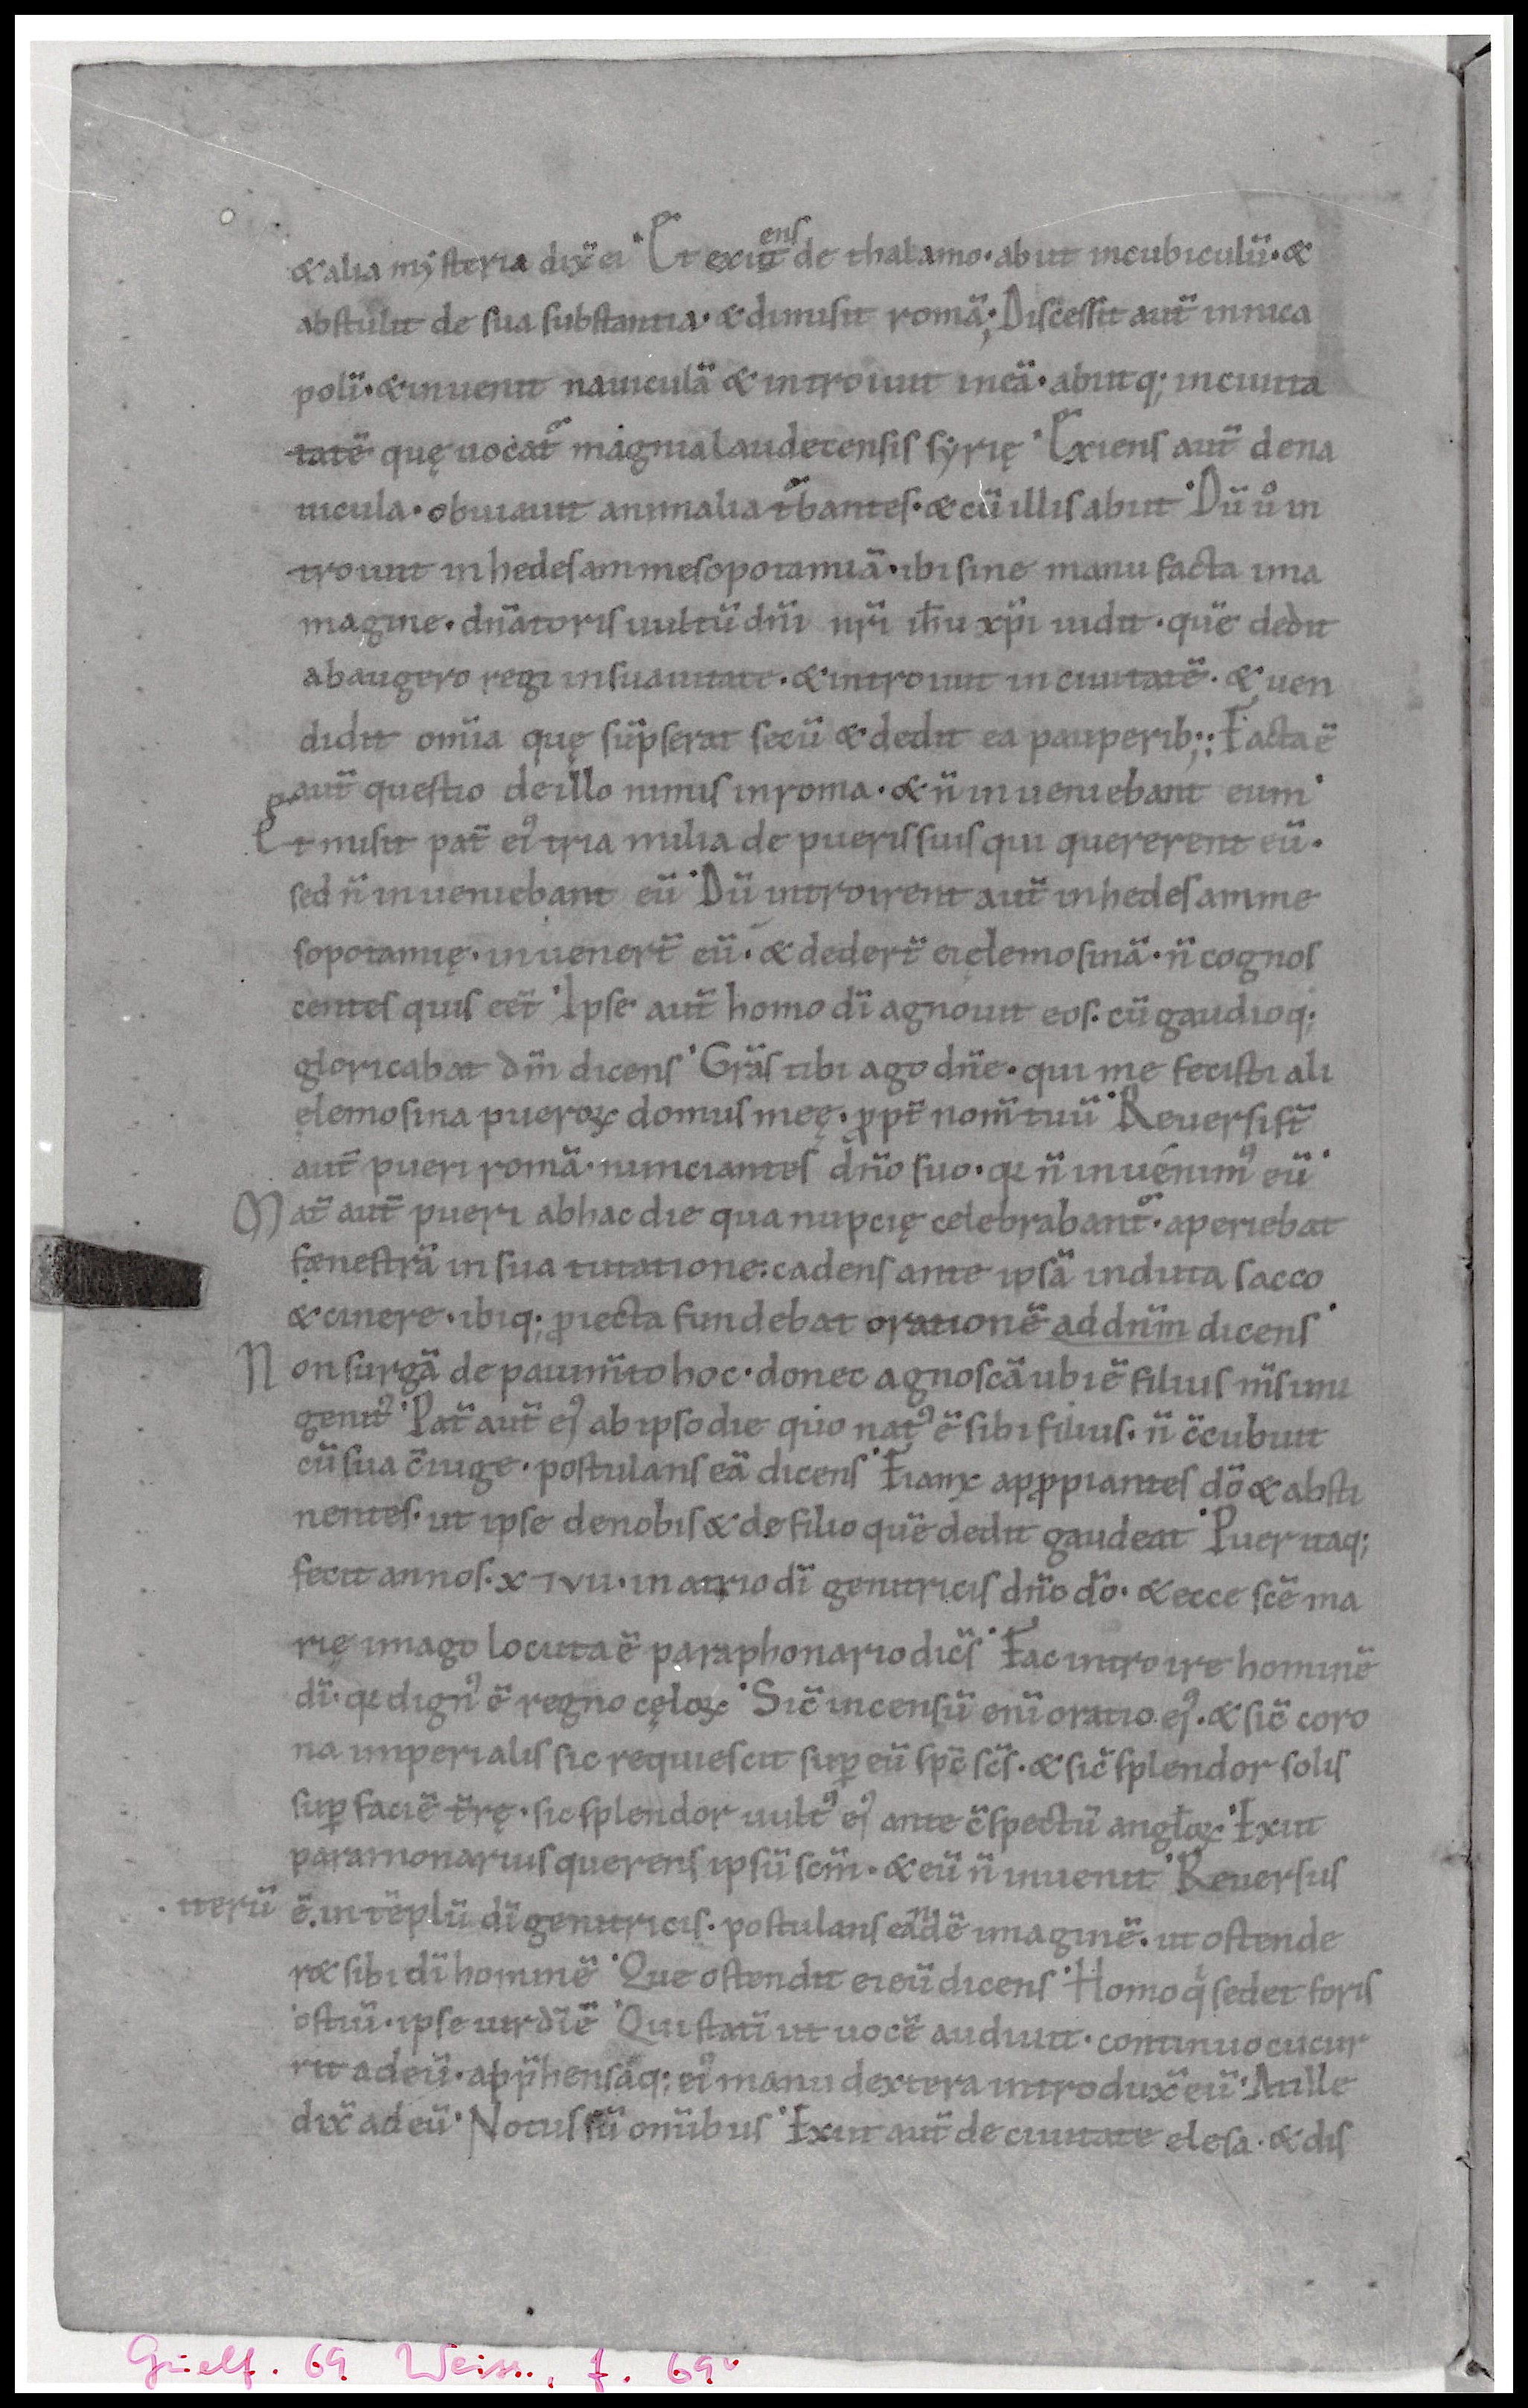 & alia mysteria dix̄ ei · Et exiens de thalamo · abiit in cubiculū · &
abstulit de sua substantia · & dimisit romā ; Discessit aut̄ in nica
poli · & inuenit nauiculā & introiuit in eā · abiitq; in ciuita
tatē quę uocat᷑ magnia laudecensis syrię · Exiens aut̄ de na
uicula · obuiauit animalia t̄bantes · & cū illis abiit · Dū u̾ in
troiuit in hedesam mesopotamiā · ibi sine manu facta ima
magine · dn̄atoris uultū dn̄i nr̄i ih̄u xp̄i uidit · quē dedit
abaugero regi in sua uitate · & introiuit in ciuitatē · & uen
didit om̄ia quę sūpserat secū & dedit ea pauperib; : Facta ē
aut̄ questio de illo nimis in roma · & n̄ inueniebant eum ·
Et misit pat̄ ei᾽ tria milia de pueris suis qui quererent eū ·
sed n̄ inueniebant eū · Dū introirent aut̄ in hedesam me
sopotamię · inuenert̄ eū · & dedert̄ ei elemosinā · n̄ cognos
centes quis eēt · Ipse aut̄ homo dī agnouit eos · cū gaudioq;
gloricabat dm̄ dicens · Grās tibi ago dn̄e · qui me fecisti ali
elemosina pueroꝝ domus meę · ꝓpt̄ nom̄ tuū · Reuersi st̄
aut̄ pueri romā · nunciantes dn̄o suo · qꝛ n̄ inuenim᾽ eū ·
Mat̄ aut̄ pueri ab hac die qua nupcię celebrabant᷑ · aperiebat
fęnestrā in sua tutatione : cadens ante ipsā induta sacco
& cinere · ibiq; ꝓiecta fundebat orationē ad dn̄m dicens ·
Non surgā de pauim̄to hoc · donec agnoscā ubi ē filius m̄s uni
genit᾽ · Pat̄ aut̄ ei᾽ ab ipso die quo nat᾽ ē sibi filius · n̄ c̄cubuit
cū sua c̄iuge · postulans eā dicens · Fiam᾽ apꝓpiantes dō & absti
nentes · ut ipse de nobis & de filio quē dedit gaudeat · Puer itaq;
fecit annos · x ⁊ vii · in atrio dī genitricis dn̄o dō · & ecce scē ma
rię imago locuta ē paraphonario dic̄s · Fac introire hominē
dī · qꝛ dign᾽ ē regno cęloꝝ · Sic̄ incensū eni oratio ei᾽ · & sic̄ coro
na imperialis sic requiescit suꝑ eū spc̄ scs̄ · & sic̄ splendor solis
suꝑ faciē t̄rę · sic splendor uult᾽ ei᾽ ante c̄spectū angl̄oꝝ · Exiit
paramonarius querens ipsū scm̄ · & eū n̄ inuenit · Reuersus
· iterū ē · in tēplū dī genitricis · postulans eandē imaginē · ut ostende
r& sibi dī hominē · Que ostendit ei eū dicens · Homo q̇ sedet foris
ostiū · ipse uir dī ē · Qui stati ut uocē audiuit · continuo cucur
rit ad eū · app̄hensaq; ei᾽ manu dextera introdux̄ eū · At ille
dix̄ ad eū · Notus sū omībus · Exiit aut̄ de ciuitate elesa · & dis
Guelf. 69 Weiss., f. 69v